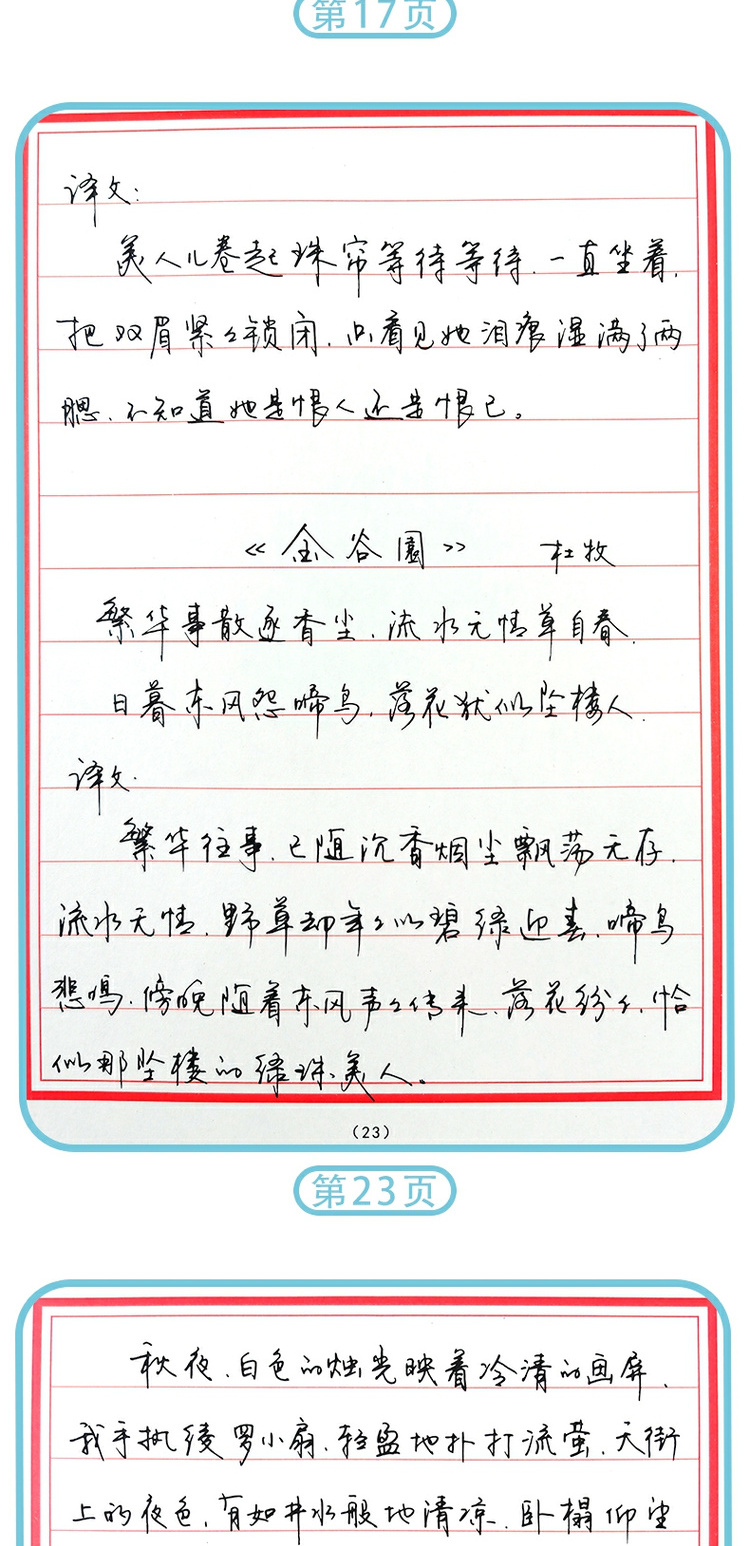 第17页
译文:
美人儿卷起珠帘等待等待,一直坐着,
把双眉紧々锁闭,只看见她泪痕湿满了两
腮,不知道她是恨人还是恨己。
《金谷園》 杜牧
繁华事散逐香尘,流水无情草自春,
日暮东风怨啼鸟,落花犹似坠楼人.
译文.
繁华往事,已随沉香烟尘飘荡无存,
流水无情,野草却年々以碧绿迎春,啼鸟
悲鸣,傍晚随着东风声々传来,落花纷々,恰
似那坠楼的绿珠美人。
(23)
第23页
秋夜,白色的烛光映着冷清的画屏,
我手执绫罗小扇,轻盈地扑打流萤,天街
上的夜色,有如井水般地清凉,卧榻仰望